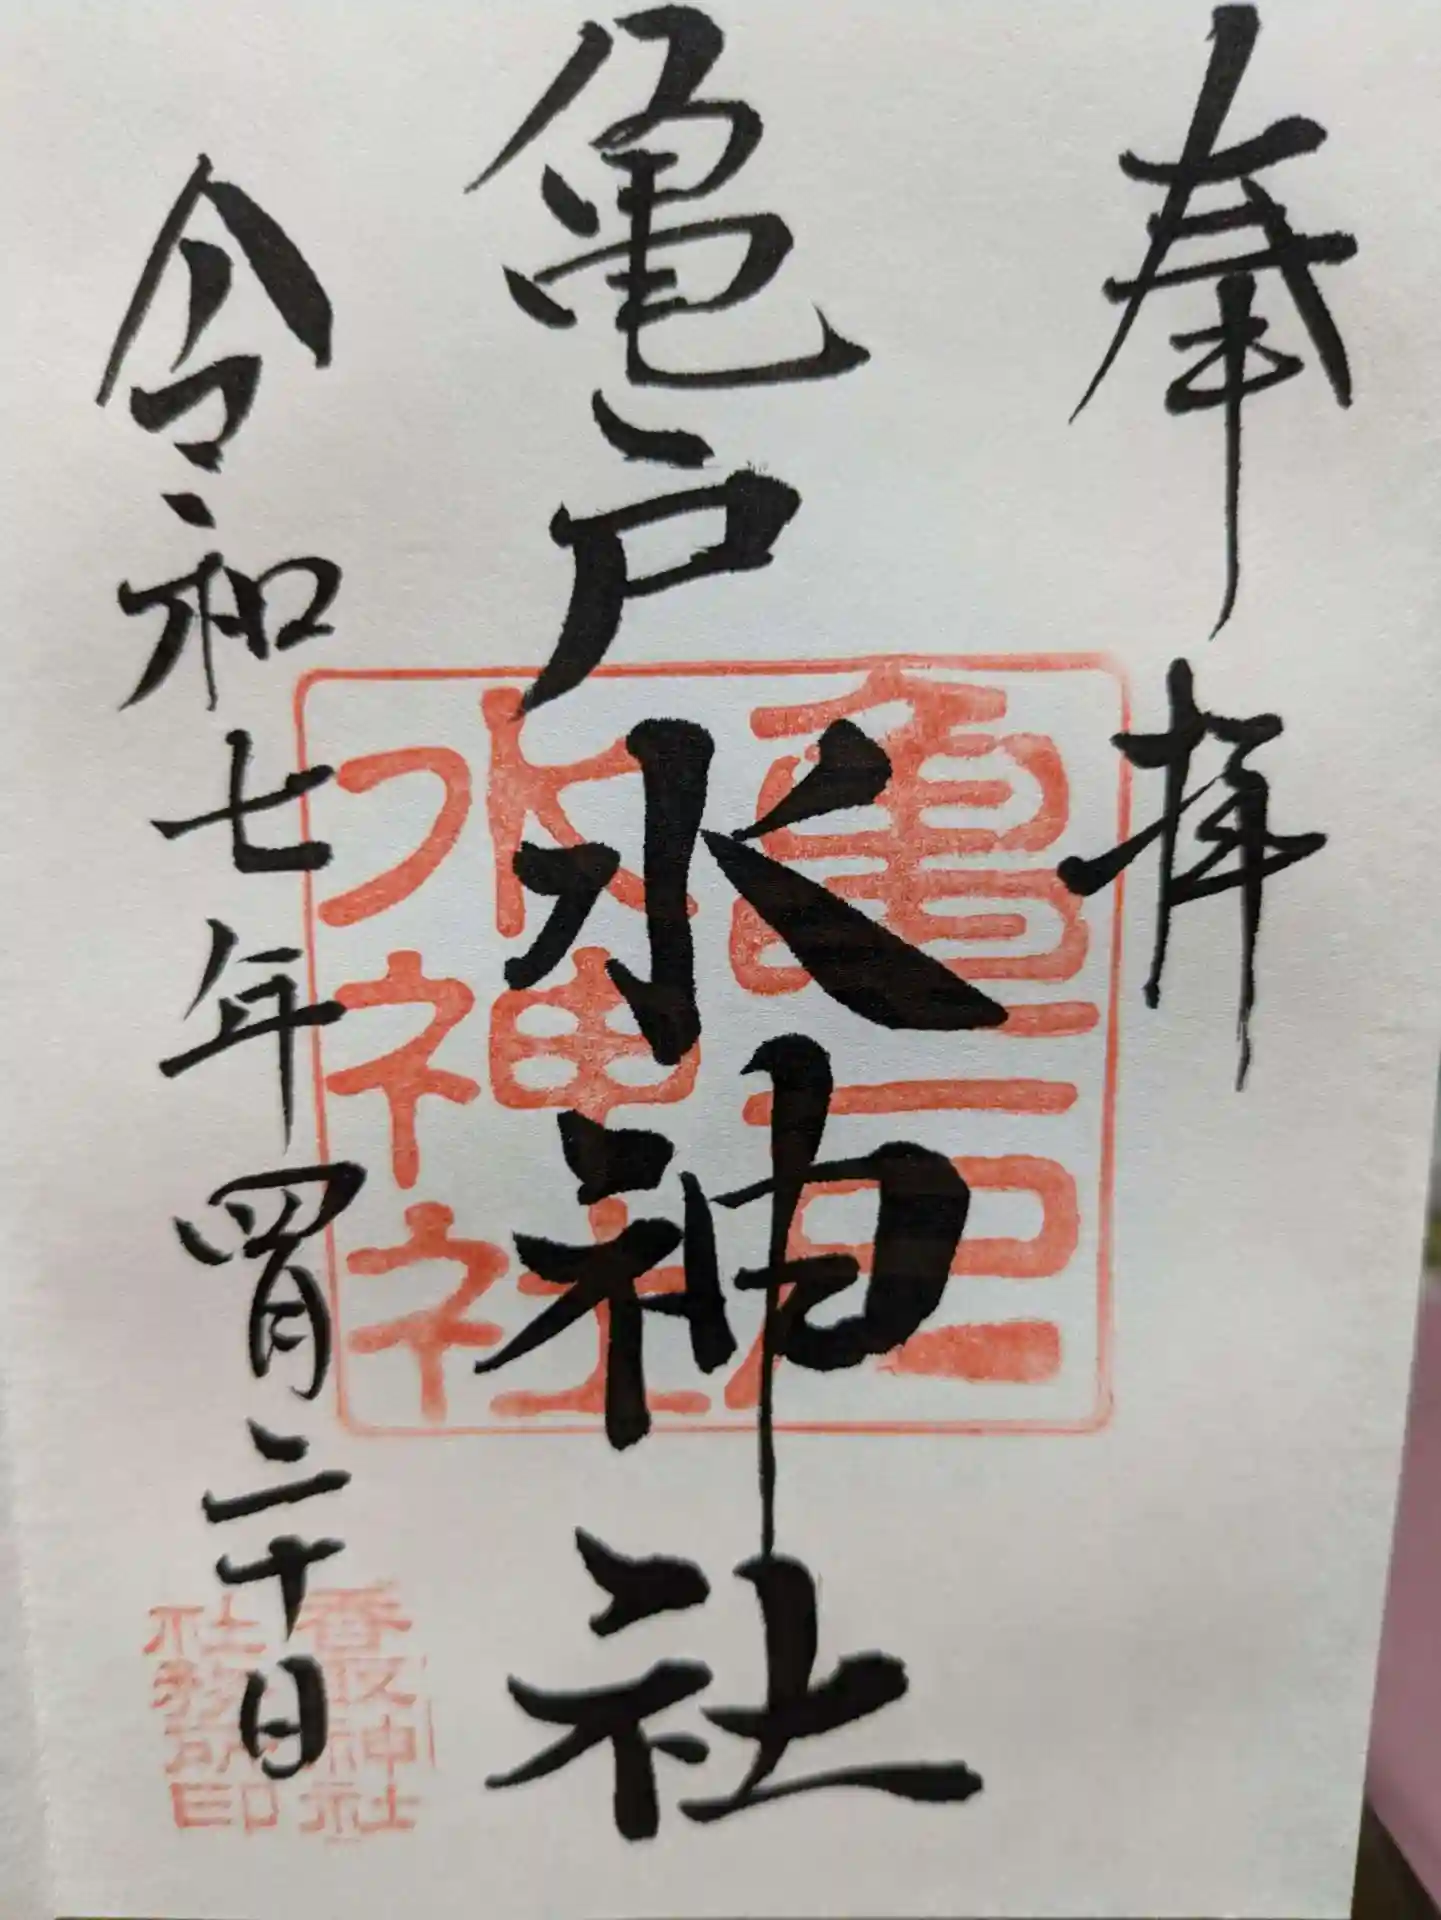 奉拝
亀戸水神社
令和七年四月二十日
亀戸
水神社
香取神社
社務所印